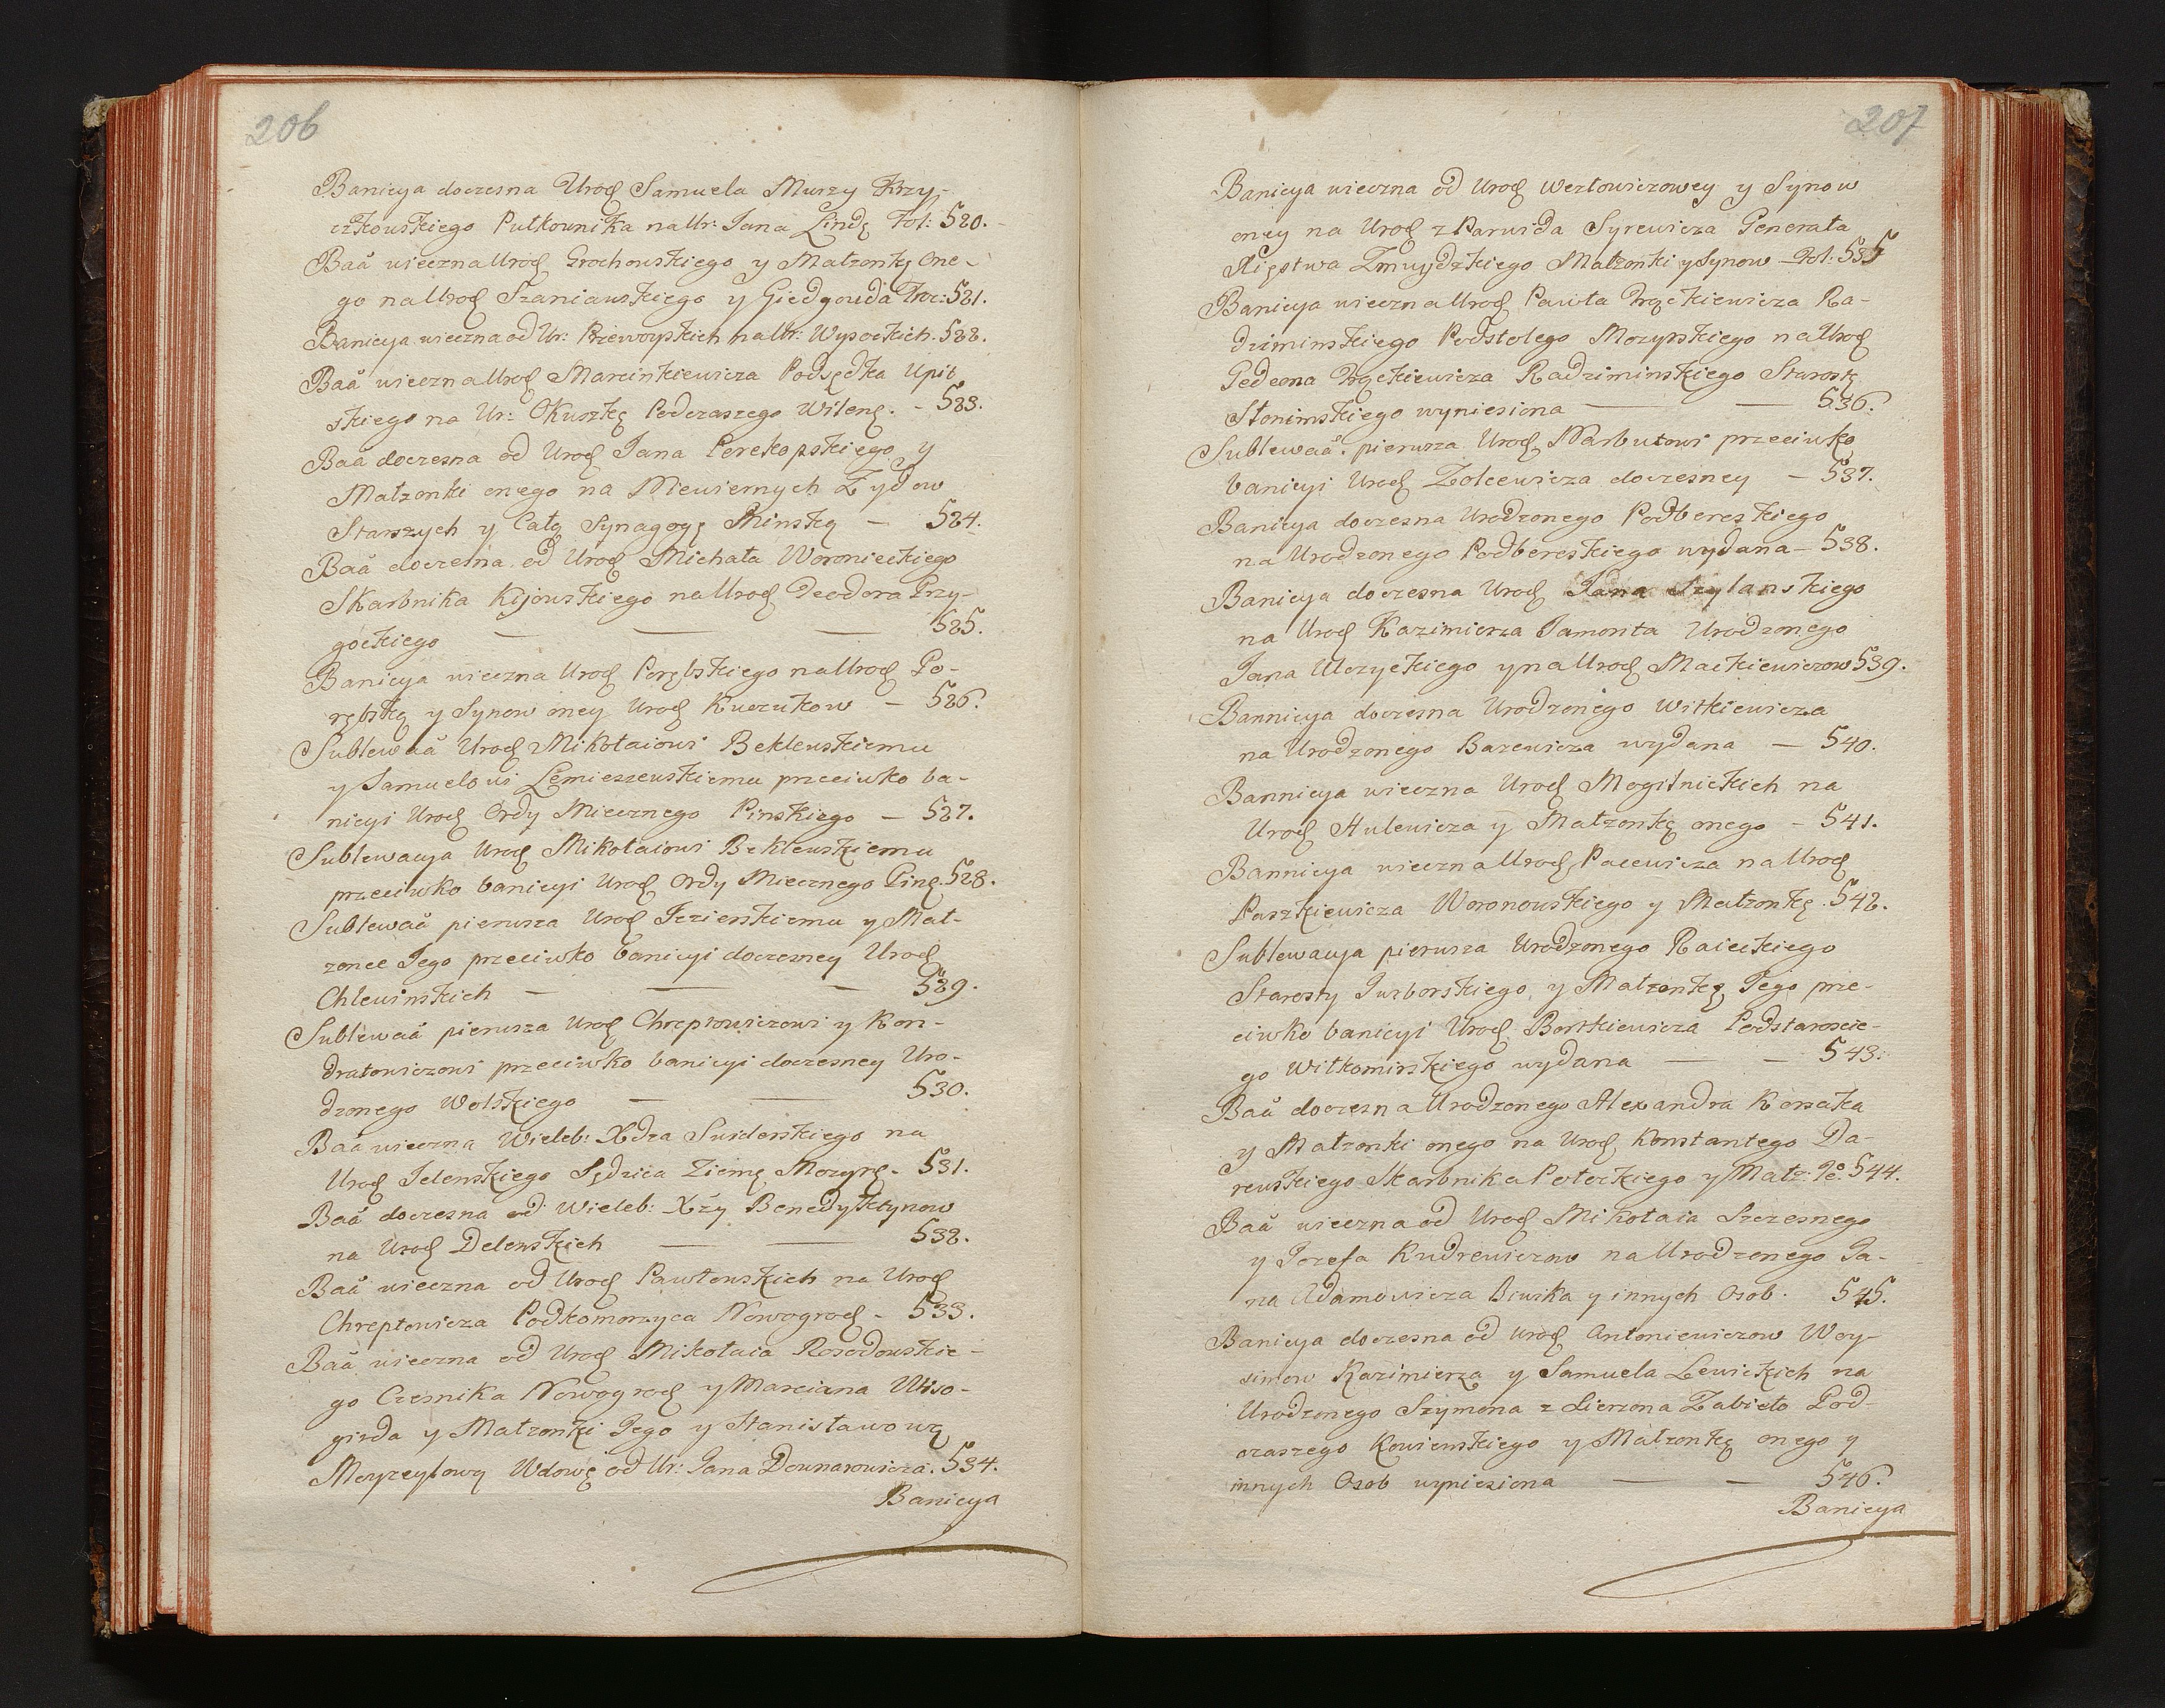 206
Banicya doczesna Urod Samuela Murzy Krzy-
czkowskiego Pułkownika na Ur: Jana Lindę Fol: 520.
Baā wieczna Urod Grochowskiego y Małzonkę one-
go na Urod Szaniawskiego y Giedgowda Troc: 521.
Banicya wieczna od Ur: Przeworskich na Ur: Wysockich. 522.
Baā wieczna Urod Marcinkiewicza Podsędka Upit
skiego na Ur: Okuszkę Podczaszego Wileń. - 523.
Baā doczesna od Urod Jana Perekopskiego y
Małzonki onego na Niewiernych Zydow
Starszych y Całą Synagogę Minską — 524.
Baā doczesna od Urod Michała Woronieckiego
Skarbnika Kijowskiego na Urod Deodora Przy-
gockiego — — — 525.
Banicya wieczna Urod Porębskiego na Urod Po-
rębską y Synow oney Urod Kuczukow — 526.
Sublewaā Urod Mikołaiowi Beklewskiemu
y Samuelowi Lemieszewskiemu przeciwko ba-
nicyi Urod Ordy Miecznego Pinskiego — 527.
Sublewacya Urod Mikołaiowi Beklewskiemu
przeciwko banicyi Urod Ordy Miecznego Piń. 528.
Sublewaā pierwsza Urod Jezierskiemu y Mał-
zonce Jego przeciwko banicyi doczesney Urod
Chlewinskich — — — 529.
Sublewaā pierwsza Urod Chreptowiczowi y Kon-
dratowiczowi przeciwko banicyi doczesney Uro-
dzonego Wolskiego — — 530.
Baā wieczna Wieleb: Xdza Swiderskiego na
Urod Jelenskiego Sędzica Ziemę Mozyrę - 531.
Baā doczesna od Wieleb: Xży Benedyktynow
na Urod Delewskich — — 532.
Baā wieczna od Urod Pawłowskich na Urod
Chreptowicza Podkomorzyca Nowogrod - 533.
Baā wieczna od Urod Mikołaia Rosodowskie-
go Czesnika Nowogrod y Marciana Wiso-
girda y Małzonki Jego y Stanisławową
Meyrzytową Wdowę od Ur: Jana Downarowicza. 534.
Banicya
207
Banicya wieczna od Urod Wertowiczowey y Synow
oney na Urod z Parwida Syrewicza Generała
Xięstwa Zmuydzkiego Małzonki y Synow - Fol: 535
Banicya wieczna Urod Pawła Frąckiewicza Ra-
dziminskiego Podstolego Mozyrskiego na Urod
Gedeona Frąckiewicza Radziminskiego Starostę
Słonimskiego wyniesiona — — 536.
Sublewaā. pierwsza Urod Narbutowi przeciwko
banicyi Urod Zolcewicza doczesney — 537.
Banicya doczesna Urodzonego Podbereskiego
na Urodzonego Podbereskiego wydana — 538.
Banicya doczesna Urod Jana Szylanskiego
na Urod Kazimierza Jamonta Urodzonego
Jana Ulczyckiego y na Urod Mackiewiczow 539.
Bannicya doczesna Urodzonego Witkiewicza
na Urodzonego Barewicza wydana — 540.
Bannicya wieczna Urod Mogilnickich na
Urod Hulewicza y Małzonkę onego - 541.
Bannicya wieczna Urod Pacewicza na Urod
Paszkiewicza Woronowskiego y Małzonkę. 542.
Sublewacya pierwsza Urodzonego Raieckiego
Starosty Jurborskiego, y Małzonkę Jego prze-
ciwko banicyi Urod Bortkiewicza Podstaroscie-
go Wiłkomirskiego wydana — — 543.
Baā doczesna Urodzonego Alexandra Korsaka
y Małzonki onego na Urod Konstantego Da-
rewskiego Skarbnika Połockiego y Małz: Je: 544.
Baā wieczna od Urod Mikołaia Szczesnego
y Jozefa Kudrewiczow na Urodzonego Ja-
na Adamowicza Biwika y innych Osob. 545.
Banicya doczesna od Urod Antoniewiczow Woy-
simow Kazimierza y Samuela Lewickich na
Urodzonego Szymona z Sierzona Zabieło Pod-
czaszego Kowienskiego y Małzonkę onego y
innych Osob wyniesiona — — 546.
Banicya